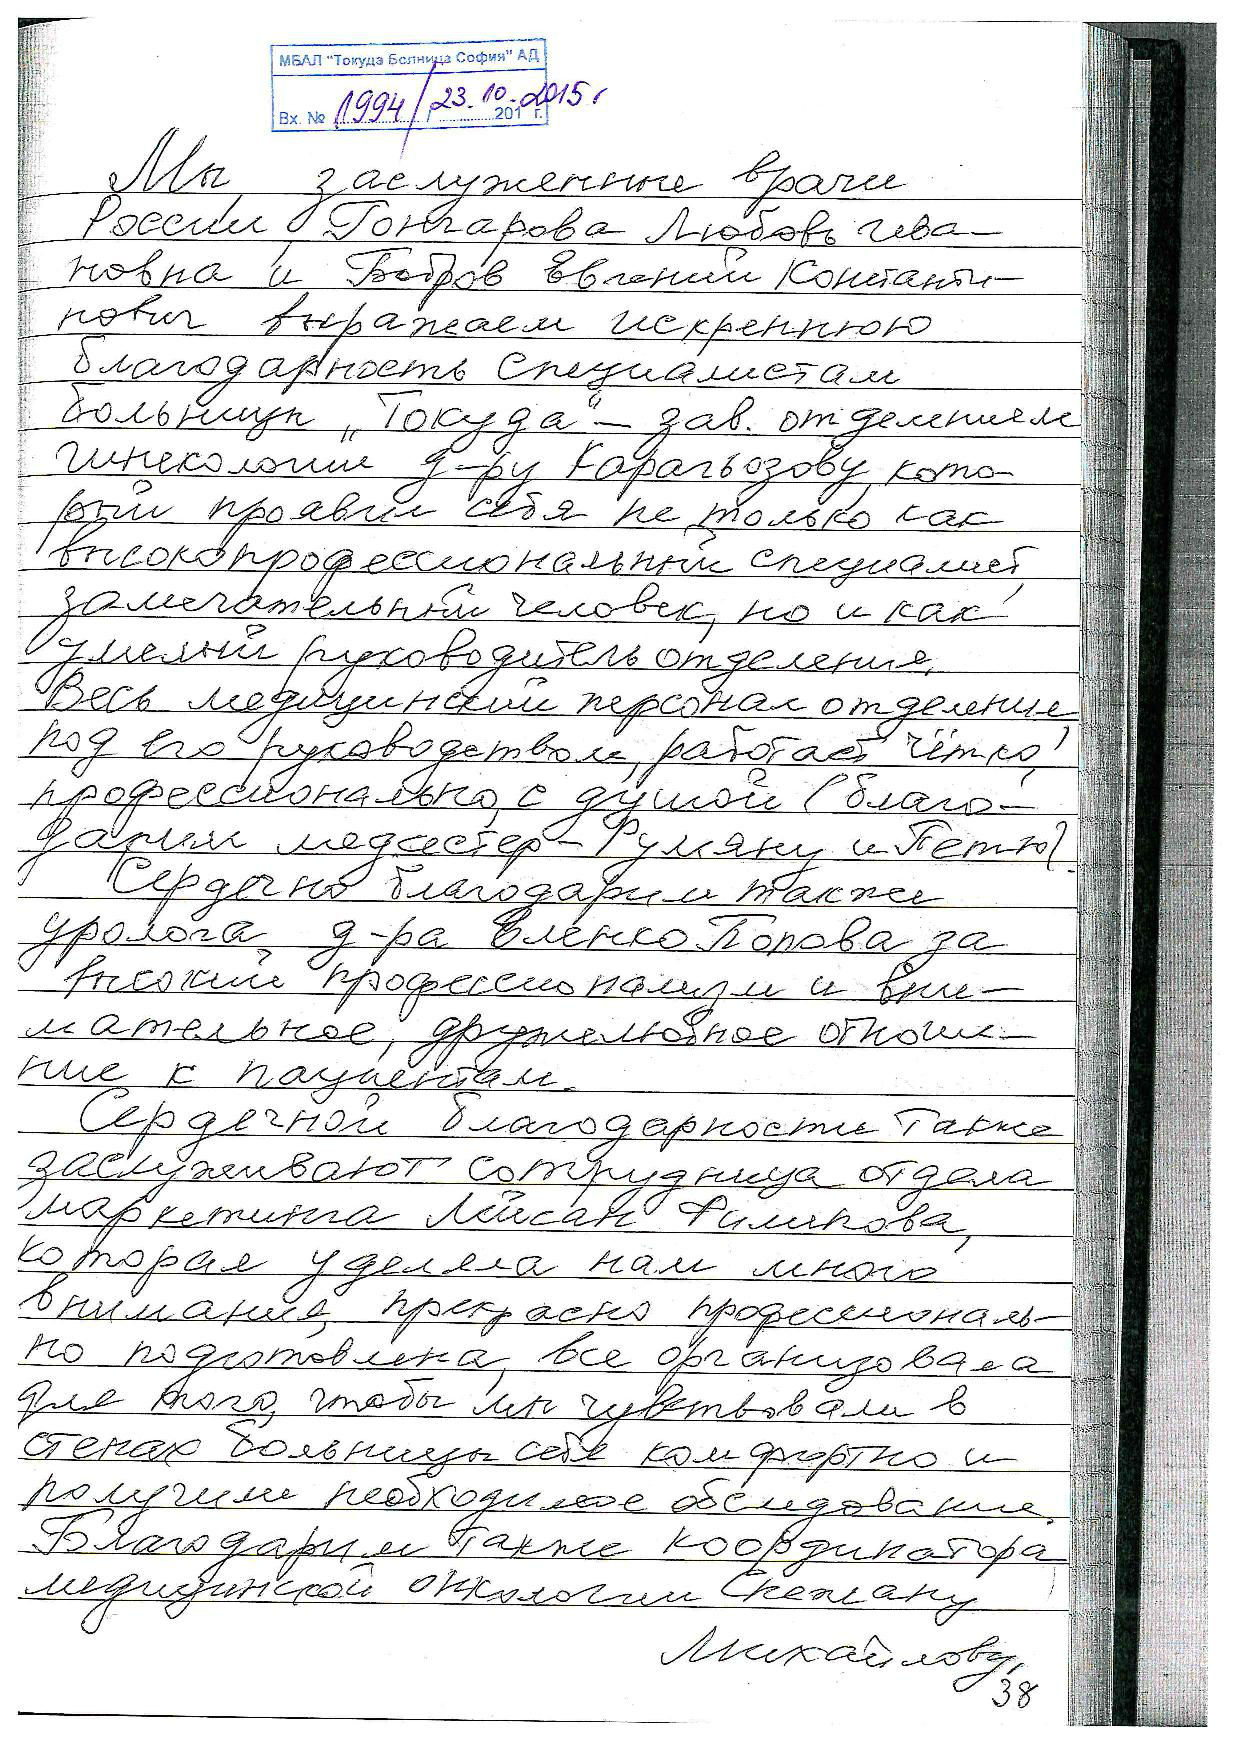 МБАЛ "Токуда Болница София" АД
Вх. № 1994/23.10.2015г
201 г.
Мы, заслуженные врачи
России Гончарова Любовь Ива-
новна и Бобров Евгений Константи-
нович выражаем искреннюю
благодарность специалистам
больницы „Токуда“ – зав. отделением
гинекологии д-ру Карагьозову, кото-
рый проявил себя не только как
высокопрофессиональный специалист,
замечательный человек, но и как
умелый руководитель отделения.
Весь медицинский персонал отделения,
под его руководством, работает чётко,
профессионально, с душой (благо-
дарим медсестер – Румяну и Петю).
Сердечно благодарим также
уролога д-ра Еленко Попова за
высокий профессионализм и вни-
мательное, дружелюбное отноше-
ние к пациентам.
Сердечной благодарности также
заслуживают сотрудница отдела
маркетинга Лейсан Филипова,
которая уделяла нам много
внимания, прекрасно профессиональ-
но подготовлена, все организовала
для того, чтобы мы чувствовали в
стенах больницы себя комфортно и
получили необходимое обследование.
Благодарим также координатора
медицинской онкологии Снежану
Михайлову,
38